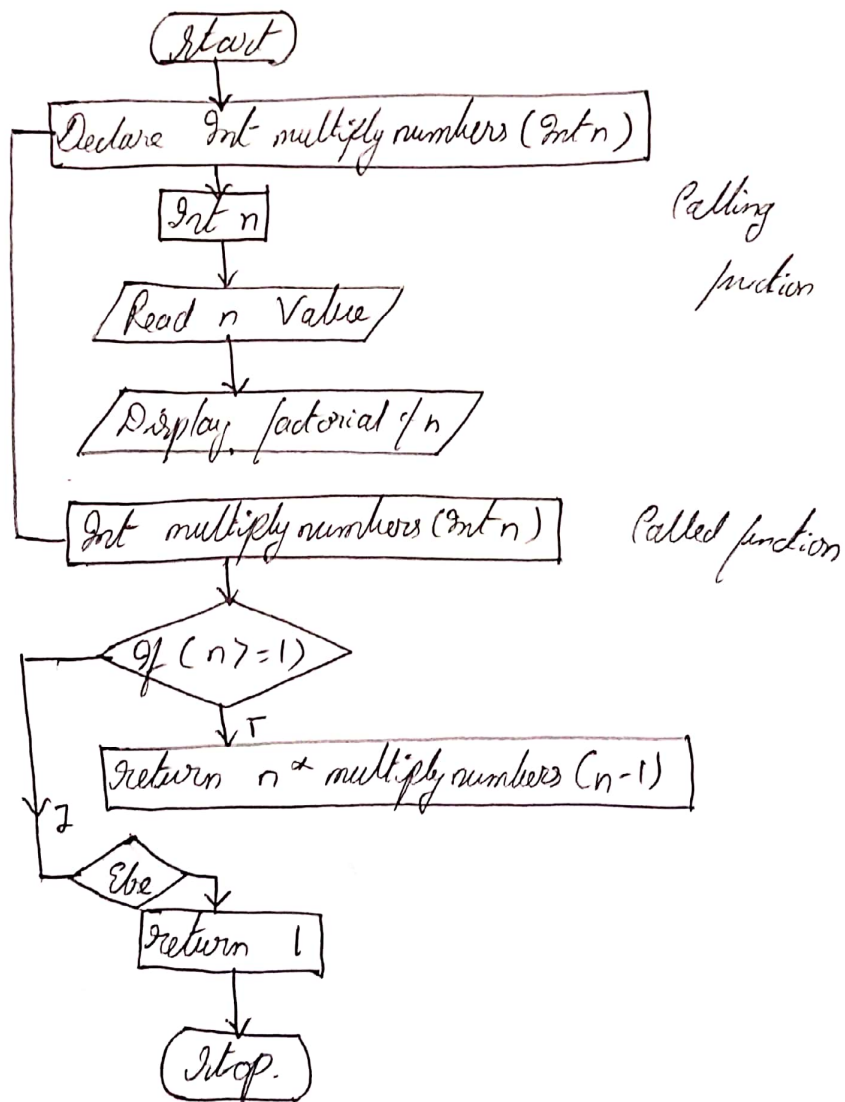 Start
Declare Int multiply numbers (Int n)
Int n
Calling
function
Read n Value
Display factorial of n
Int multiply numbers (Int n)
Called function
If (n >= 1)
T
return n * multiply numbers (n-1)
F
Else
return 1
Stop.